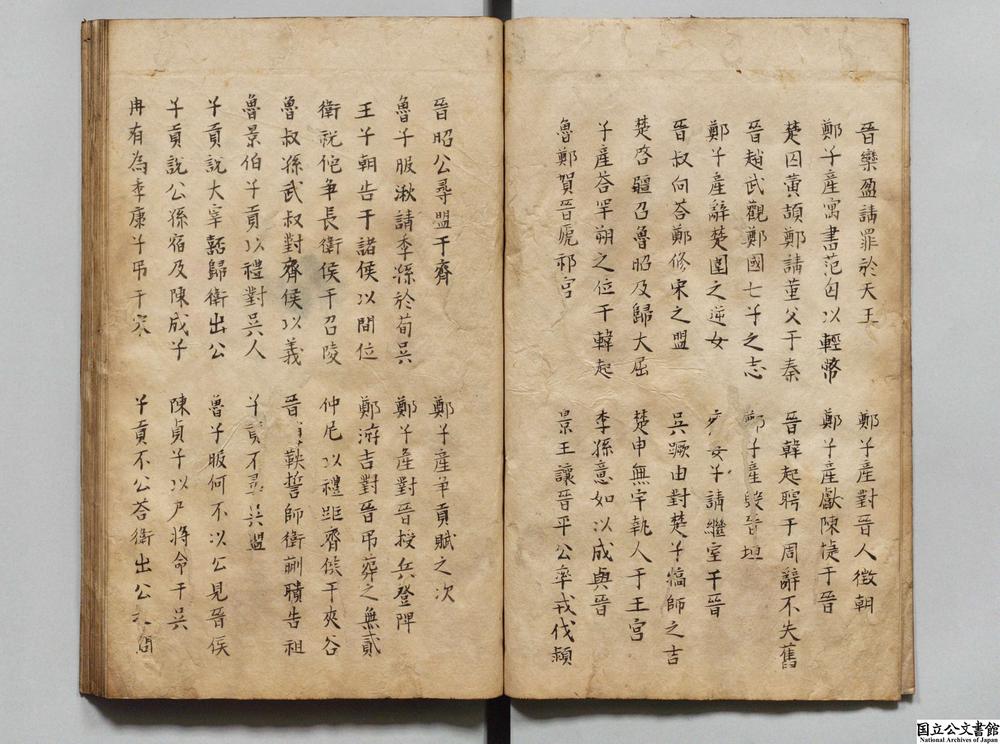 晉欒盈請罪於天王 鄭子產對晉人徵朝
鄭子產寓書范匄以輕幣 鄭子產獻陳捷于晉
楚囚黃頡鄭請董父于秦 晉韓起聘于周辭不失舊
晉趙武觀鄭國七子之志 子產毀晉垣
鄭子產辭楚圍之逆女 子請繼室于晉
晉叔向荅鄭修宋之盟 吳蹶由對楚子犒師之吉
楚啓疆召魯昭及歸大屈 楚申無宇執人于王宮
子產荅罕朔之位于韓起 季孫意如以成與晉
魯鄭賀晉虒祁宮 景王讓晉平公率戎伐潁
晉昭公尋盟于齊 鄭子產爭貢賦之次
魯子服湫請季孫於荀吳 鄭子產對晉授兵登陴
王子朝告于諸侯以間位 鄭游吉對晉吊葬之無貳
衛祝佗爭長衛侯于召陵 仲尼以禮距齊侯于夾谷
魯叔孫武叔對齊侯以義 晉鞅誓師衛蒯聵告祖
魯景伯子貢以禮對吳人 子貢不尋吳盟
子貢說大宰嚭歸衛出公 魯子服何不以公見晉侯
子貢說公孫宿及陳成子 陳貞子以尸將命于吳
冉有為季康子吊于宋 子貢不公荅衛出公問
国立公文書館
National Archives of Japan